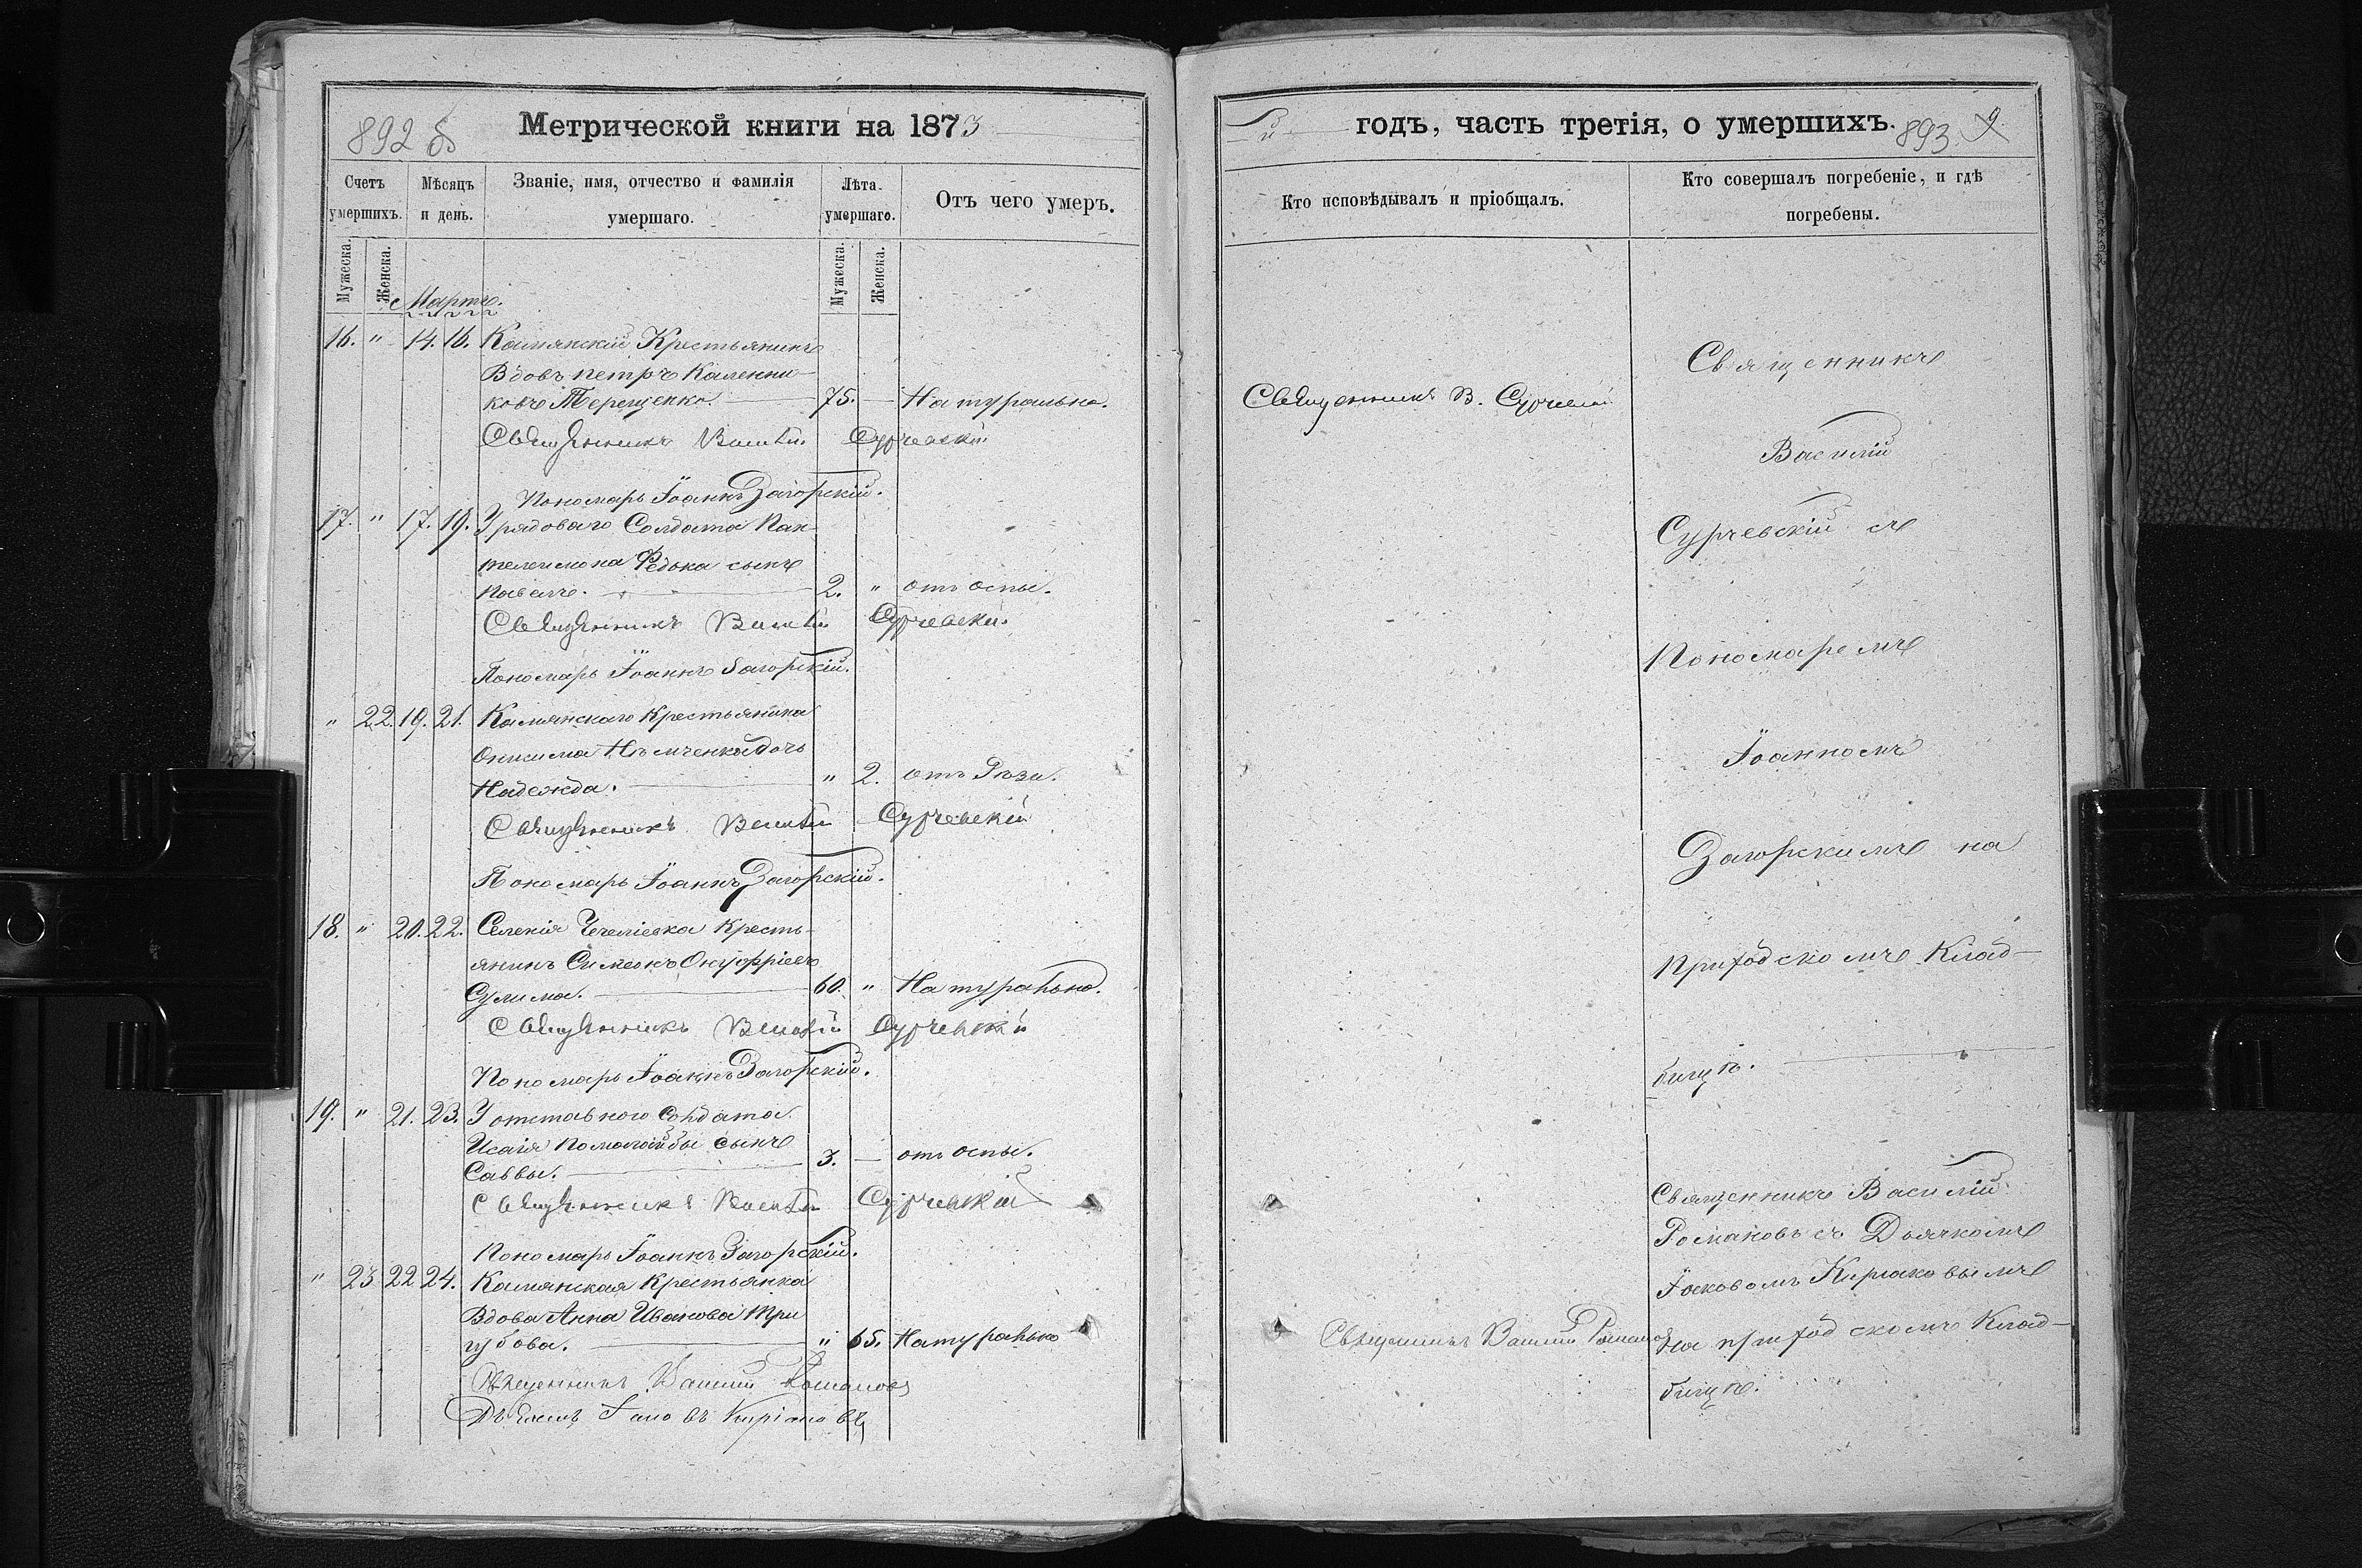 892 б Метрической книги на 1873
Счетъ умершихъ. Мѣсяцъ и день. Званіе, имя, отчество и фамилія умершаго. Лѣта умершаго. Отъ чего умеръ.
Мужеска. Женска. Мужеска. Женска.
Мартъ.
16. " 14. 16. Камянскій Крестьянинъ
Вдовъ петръ Каленни-
ковъ Терещенко. 75. — Натурально.
Священникъ Василій Сурчевскій
Пономарь Іоаннъ Загорскій.
17. " 17. 19. У рядоваго Солдата Пан-
телеимона Федька сынъ
Павелъ. 2. " отъ оспы.
Священникъ Василій Сурчевскій
Пономарь Іоаннъ Загорскій.
" 22. 19. 21. Камянскаго Крестьянина
Онисима Нѣмченка дочь
Надежда. " 2. отъ
Священникъ Василій Сурчевскій
Пономарь Іоаннъ Загорскій.
18. " 20. 22. Селенія Чечеліевка Кресть-
янинъ Симеонъ Онуфріевъ
Сулима. 60. " Натурально.
Священникъ Василій Сурчевскій
Пономарь Іоаннъ Загорскій.
19. " 21. 23. У отставного Солдата
Исаія сынъ
Саввы. 3. — отъ оспы.
Священникъ Василій Сурчевскій
Пономарь Іоаннъ Загорскій.
" 23 22 24. Камянская Крестьянка
Вдова Анна Иванова Три
губова. " 65. Натурально
Священникъ Василій Романовъ
Іаковъ Киріаковъ
й годъ, часть третія, о умершихъ. 893. 9.
Кто исповѣдывалъ и пріобщалъ. Кто совершалъ погребеніе, и гдѣ погребены.
Священникъ В. Сурчевскій
Священникъ
Василій
Сурчевскій съ
Пономаремъ
Іоанномъ
Загорскимъ на
приходскомъ Клад-
бищѣ.
Священникъ Василій
Романовъ съ Дьячкомъ
Іаковомъ Киріаковымъ
Священникъ Василій Романовъ на приходскомъ Клад-
бищѣ.